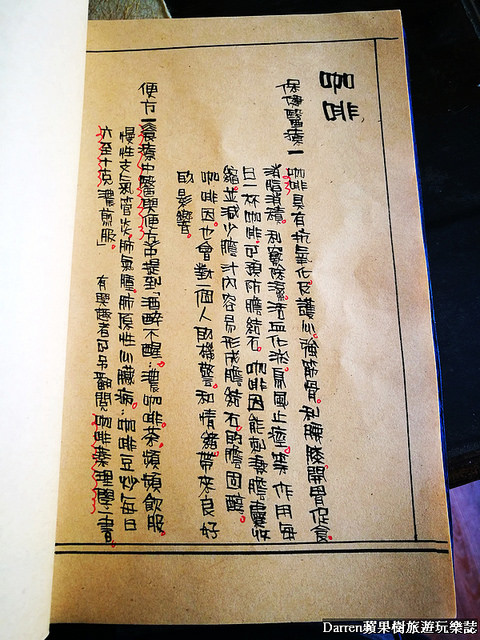 咖啡
保健醫療一咖啡具有抗氧化及護心、強筋骨、利腰膝、開胃促食、
消脂消積、利竅除濕、活血化淤、息風止痙等作用。每
日一杯咖啡可預防膽結石。咖啡因能刺激膽囊收
縮，並減少膽汁內容易形成膽結石的膽固醇。
咖啡因也會對一個人的機警和情緒帶來良好
的影響。
便方一食療中醫與便方中提到：酒醉不醒：濃咖啡茶頻頻飲服。
慢性支氣管炎、肺氣腫、肺原性心臟病：咖啡豆炒每日
六至十克濃煎服」 有興趣者可另翻閱咖啡藥理學一書
Darren蘋果樹旅遊玩樂誌